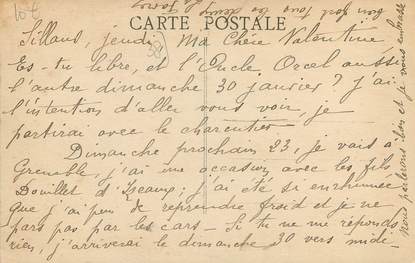 CARTE POSTALE
Sillans, jeudi, Ma Chère Valentine
Es-tu libre, et l'Oncle Orcel aussi
l'autre dimanche 30 janvier ? j'ai
l'intention d'aller vous voir, je
partirai avec le charcutier
Dimanche prochain 23, je vais à
Grenoble, j'ai une occasion avec les fils
Douillet d'Izeaux ; j'ai été si enrhumée
que j'ai peur de reprendre froid et je ne
pars pas par les cars - Si tu ne me réponds
rien, j'arriverai le dimanche 30 vers midi -
nous parlerons bien et je vous embrasse
10€